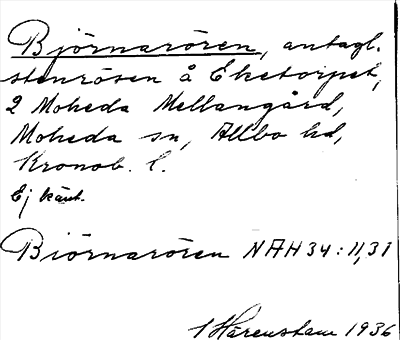 Björnarören, antagl.
stenrösen å Eketorpet,
2 Moheda Mellangård,
Moheda sn, Allbo hd,
Kronob. l.
Ej känt.
Biörnarören NAH 34:11,31
Härenstam 1936